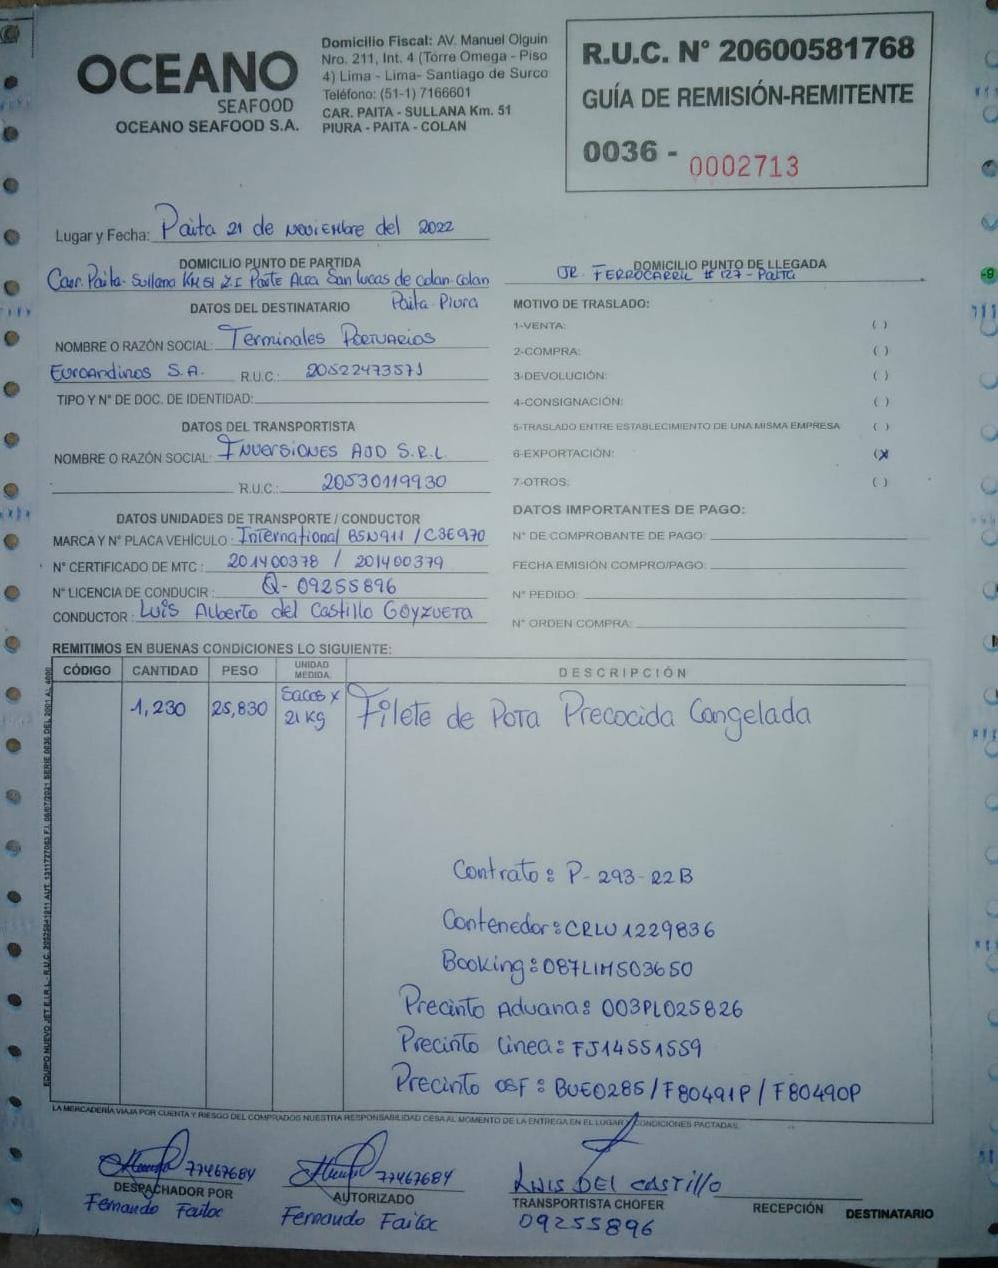 OCEANO
SEAFOOD
OCEANO SEAFOOD S.A.
Domicilio Fiscal: AV. Manuel Olguin
Nro. 211, Int. 4 (Torre Omega - Piso
4) Lima - Lima- Santiago de Surco
Teléfono: (51-1) 7166601
CAR. PAITA - SULLANA Km. 51
PIURA - PAITA - COLAN
R.U.C. N° 20600581768
GUÍA DE REMISIÓN-REMITENTE
0036 - 0002713
Lugar y Fecha: Paita 21 de noviembre del 2022
DOMICILIO PUNTO DE PARTIDA
Carr. Paita- Sullana KM 51 Z.I Parte Alta San lucas de colan-Colan
Paita Piura
DOMICILIO PUNTO DE LLEGADA
JR. FERROCARRIL # 127 - Paita
DATOS DEL DESTINATARIO
NOMBRE O RAZÓN SOCIAL: Terminales Portuarios
Euroandinos S.A. R.U.C.: 20522473571
TIPO Y N° DE DOC. DE IDENTIDAD:
DATOS DEL TRANSPORTISTA
NOMBRE O RAZÓN SOCIAL: Inversiones AJD S.R.L.
R.U.C.: 20530119930
DATOS UNIDADES DE TRANSPORTE / CONDUCTOR
MARCA Y N° PLACA VEHÍCULO: International BSN911 / C3E970
N° CERTIFICADO DE MTC: 201400378 / 201400379
N° LICENCIA DE CONDUCIR: Q- 09255896
CONDUCTOR: Luis Alberto del Castillo Goyzueta
MOTIVO DE TRASLADO:
1-VENTA: ( )
2-COMPRA: ( )
3-DEVOLUCIÓN: ( )
4-CONSIGNACIÓN: ( )
5-TRASLADO ENTRE ESTABLECIMIENTO DE UNA MISMA EMPRESA ( )
6-EXPORTACIÓN: (X)
7-OTROS: ( )
DATOS IMPORTANTES DE PAGO:
N° DE COMPROBANTE DE PAGO:
FECHA EMISIÓN COMPRO/PAGO:
N° PEDIDO:
N° ORDEN COMPRA:
REMITIMOS EN BUENAS CONDICIONES LO SIGUIENTE:
CÓDIGO CANTIDAD PESO UNIDAD MEDIDA DESCRIPCIÓN
1,230 25,830 Sacos x 21 Kg Filete de Pota Precocida Congelada
Contrato: P- 293-22B
Contenedor: CRLU 1229836
Booking: 087LIM503650
Precinto Aduana: 003PL025826
Precinto linea: FJ14551559
Precinto OSF: BUE0285 / F80491P / F80490P
LA MERCADERÍA VIAJA POR CUENTA Y RIESGO DEL COMPRADOS NUESTRA RESPONSABILIDAD CESA AL MOMENTO DE LA ENTREGA EN EL LUGAR Y CONDICIONES PACTADAS.
77467684
DESPACHADOR POR
Fernando Failoc
77467684
AUTORIZADO
Fernando Failoc
LUIS DEL CASTILLO
TRANSPORTISTA CHOFER
09255896
RECEPCIÓN DESTINATARIO